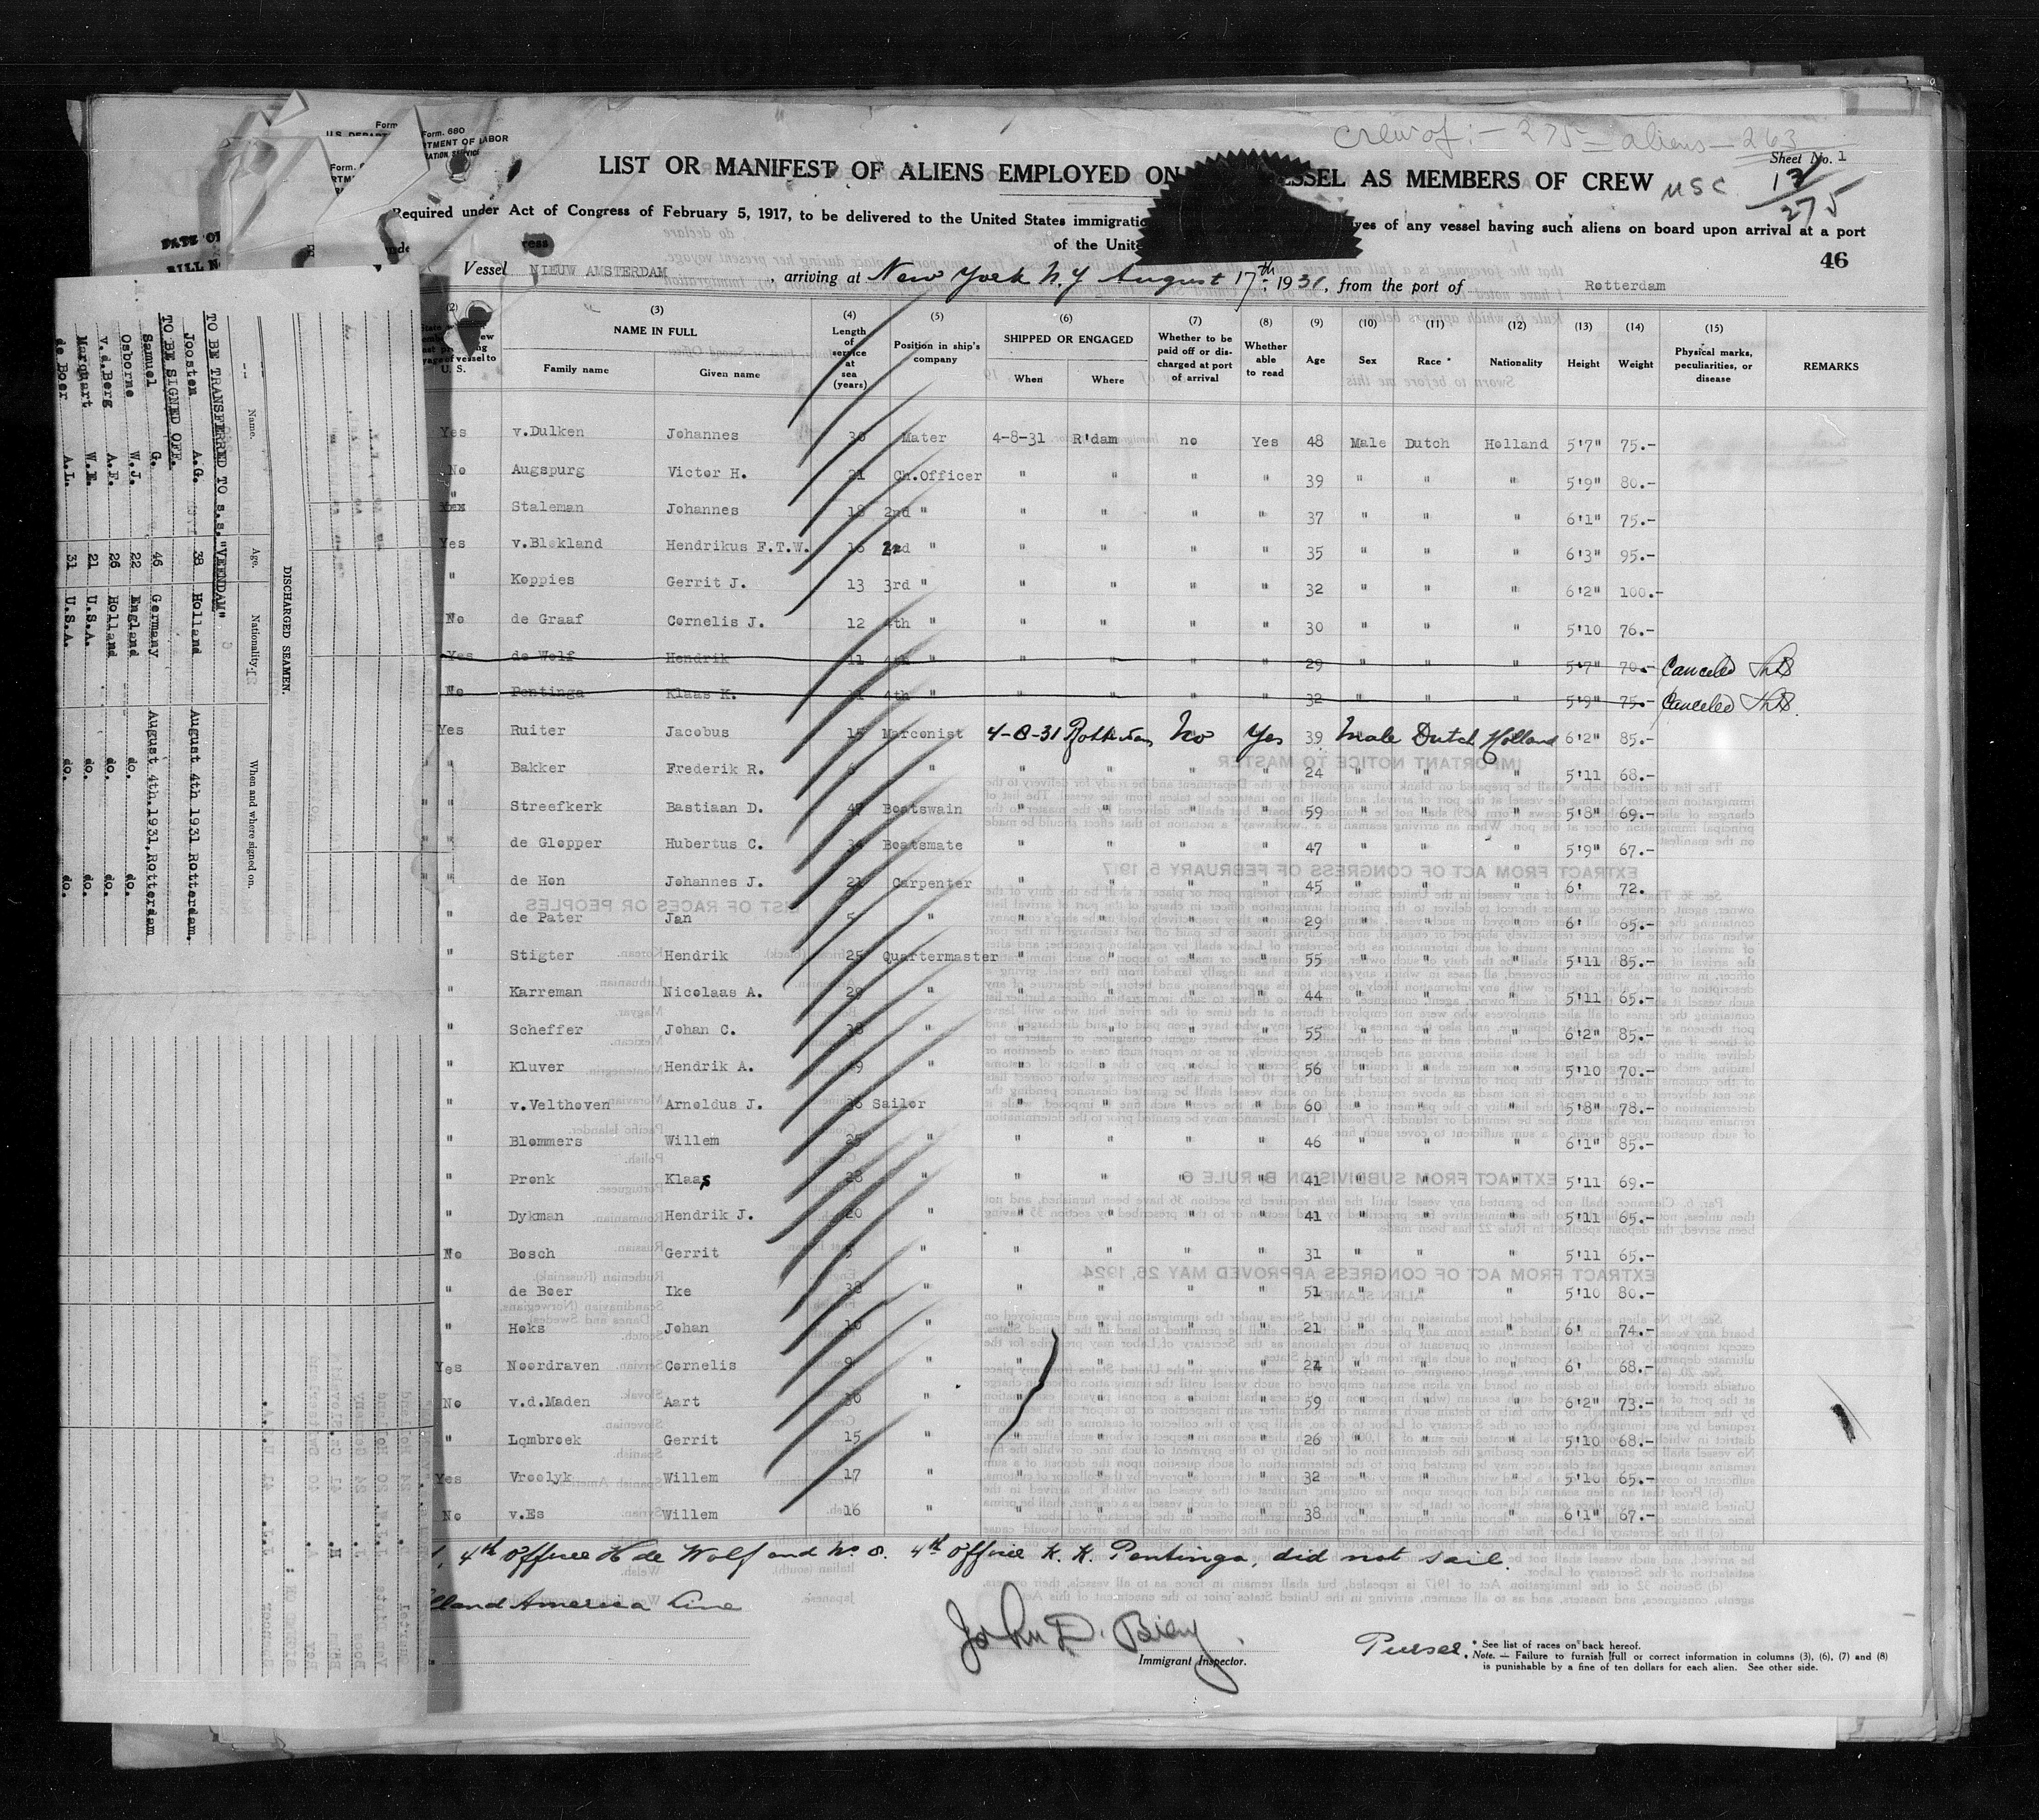 crew of:- 275 - aliens - 263
Form. 680
U.S. DEPARTMENT OF LABOR
Sheet No. 1
LIST OR MANIFEST OF ALIENS EMPLOYED ON VESSEL AS MEMBERS OF CREW
USC 12
275
Required under Act of Congress of February 5, 1917, to be delivered to the United States immigration of any vessel having such aliens on board upon arrival at a port
of the United
46
Vessel NIEUW AMSTERDAM, arriving at New York N.Y August 17th, 1931, from the port of Rotterdam
(2) (3) (4) (5) (6) (7) (8) (9) (10) (11) (12) (13) (14) (15)
NAME IN FULL Length of service at sea (years) Position in ship's company SHIPPED OR ENGAGED Whether to be paid off or discharged at port of arrival Whether able to read Age Sex Race * Nationality Height Weight Physical marks, peculiarities, or disease REMARKS
Family name Given name When Where
Yes v.Dulken Johannes 30 Mater 4-8-31 R'dam no Yes 48 Male Dutch Holland 5'7" 75.-
No Augspurg Victor H. 21 Ch.Officer " " " " 39 " " " 5'9" 80.-
" Staleman Johannes 18 2nd " " " " " 37 " " " 6'1" 75.-
Yes v.Blokland Hendrikus F.T.W. 16 2nd " " " " " 35 " " " 6'3" 95.-
" Koppies Gerrit J. 13 3rd " " " " " 32 " " " 6'2" 100.-
No de Graaf Cornelis J. 12 4th " " " " " 30 " " " 5'10 76.-
Yes de Wolf Hendrik 11 4th " " " " " 29 " " " 5'7" 70.- Canceled
No Pentinga Klaas K. 11 4th " " " " " 32 " " " 5'9" 75.- Canceled
Yes Ruiter Jacobus 15 Marconist 4-8-31 Rotterdam No Yes 39 Male Dutch Holland 6'2" 85.-
" Bakker Frederik R. 6 " " " " " 24 " " " 5'11 68.-
" Streefkerk Bastiaan D. 47 Boatswain " " " " 59 " " " 5'8" 69.-
" de Glopper Hubertus C. 34 Boatsmate " " " " 47 " " " 5'9" 67.-
" de Hon Johannes J. 21 Carpenter " " " " 45 " " " 6' 72.
" de Pater Jan 5 " " " " " 29 " " " 6' 65.-
" Stigter Hendrik 25 Quartermaster " " " " 55 " " " 5'11 85.-
" Karreman Nicolaas A. 29 " " " " " 44 " " " 5'11 65.-
" Scheffer Johan C. 38 " " " " " 55 " " " 6'2" 85.-
" Kluver Hendrik A. 39 " " " " " 56 " " " 5'10 70.-
" v.Velthoven Arnoldus J. 36 Sailor " " " " 60 " " " 5'8" 78.-
" Blommers Willem 25 " " " " " 46 " " " 6'1" 85.-
" Pronk Klaas 28 " " " " " 41 " " " 5'11 69.-
" Dykman Hendrik J. 20 " " " " " 41 " " " 5'11 65.-
No Bosch Gerrit 5 " " " " " 31 " " " 5'11 65.-
" de Boer Ike 38 " " " " " 51 " " " 5'10 80.-
" Hoks Johan 16 " " " " " 21 " " " 6' 74.-
Yes Noordraven Cornelis 9 " " " " " 24 " " " 6' 68.-
No v.d.Maden Aart 30 " " " " " 59 " " " 6'2" 73.-
" Lombroek Gerrit 15 " " " " " 26 " " " 5'10 68.-
Yes Vroolyk Willem 17 " " " " " 32 " " " 5'10 65.-
No v.Es Willem 16 " " " " " 38 " " " 6'1" 67.-
4th officer H de Wolf and No 8. 4th officer K. K. Pentinga, did not sail.
Holland America Line
John D. Bieny
Immigrant Inspector.
Purser.
* See list of races on back hereof.
Note. — Failure to furnish full or correct information in columns (3), (6), (7) and (8)
is punishable by a fine of ten dollars for each alien. See other side.
DISCHARGED SEAMEN.
Name. Age. Nationality. When and where signed on.
TO BE TRANSFERRED TO s.s."VEENDAM"
Joosten A.G. 38 Holland August 4th 1931 Rotterdam.
TO BE SIGNED OFF.
Samuel G. 46 Germany August 4th.1931, Rotterdam
Osborne W.J. 22 England do. do.
v.d.Berg A.F. 26 Holland do. do.
Marquart W.E. 21 U.S.A. do. do.
de Boer A.L. 31 U.S.A. do. do.